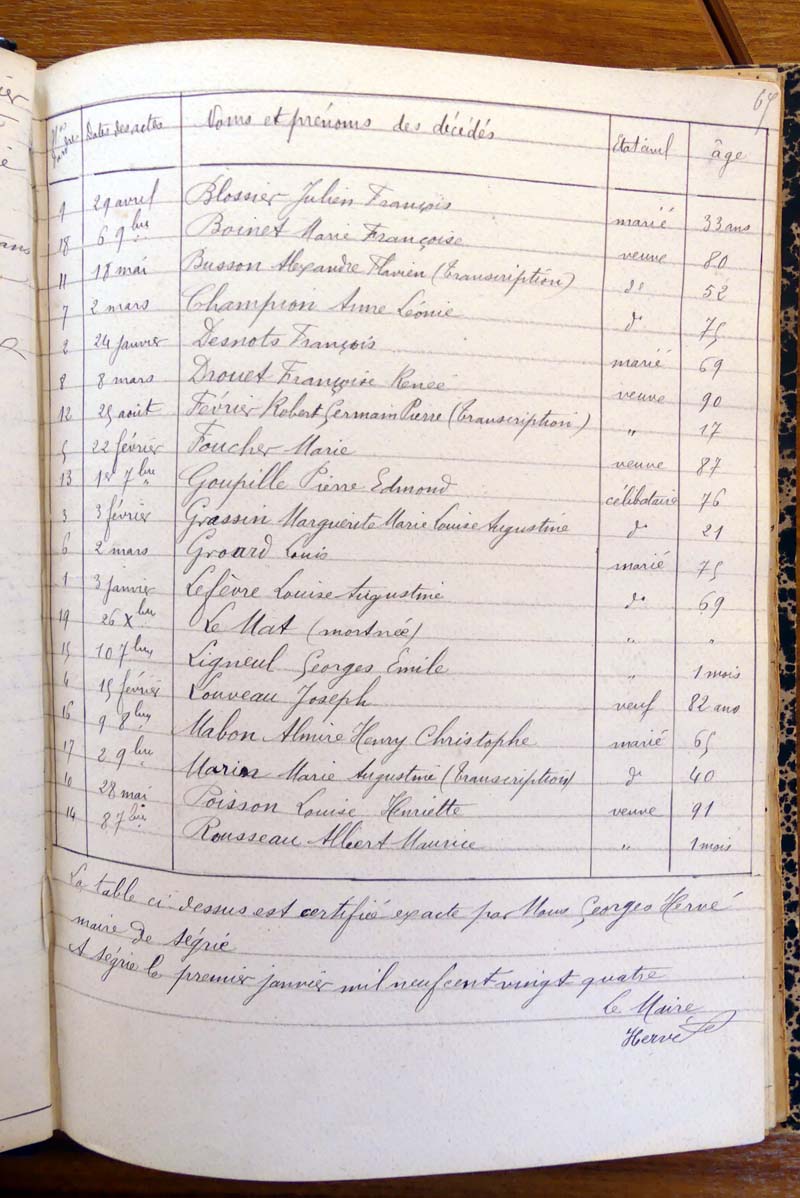 67
Nos d'ordre Dates des actes Noms et prénoms des décédés Etat civil âge
9 29 avril Blossier Julien François marié 33 ans
18 6 9bre Boinet Marie Françoise veuve 80
11 18 mai Busson Alexandre Flavien (Transcription) do 52
7 2 mars Champion Anne Léonie do 75
2 24 janvier Desnots François marié 69
8 8 mars Drouet Françoise Renée veuve 90
12 25 août Février Robert Germain Pierre (Transcription) " 17
5 22 février Foucher Marie veuve 87
13 1er 7bre Goupille Pierre Edmond célibataire 76
3 3 février Grassin Marguerite Marie Louise Augustine do 21
6 2 mars Groard Louis marié 75
1 3 janvier Lefèvre Louise Augustine do 69
19 26 Xbre Le Mat (mortnée) " "
15 10 7bre Ligneul Georges Emile " 1 mois
4 15 février Louveau Joseph veuf 82 ans
16 9 8bre Mabon Almire Henry Christophe marié 65
17 2 9bre Marin Marie Augustine (Transcription) do 40
10 28 mai Poisson Louise Henriette veuve 91
14 8 7bre Rousseau Albert Maurice " 1 mois
La table ci dessus est certifiée exacte par Nous Georges Hervé
maire de ségrie
A ségrie le premier janvier mil neuf cent vingt quatre
Le Maire
Hervé